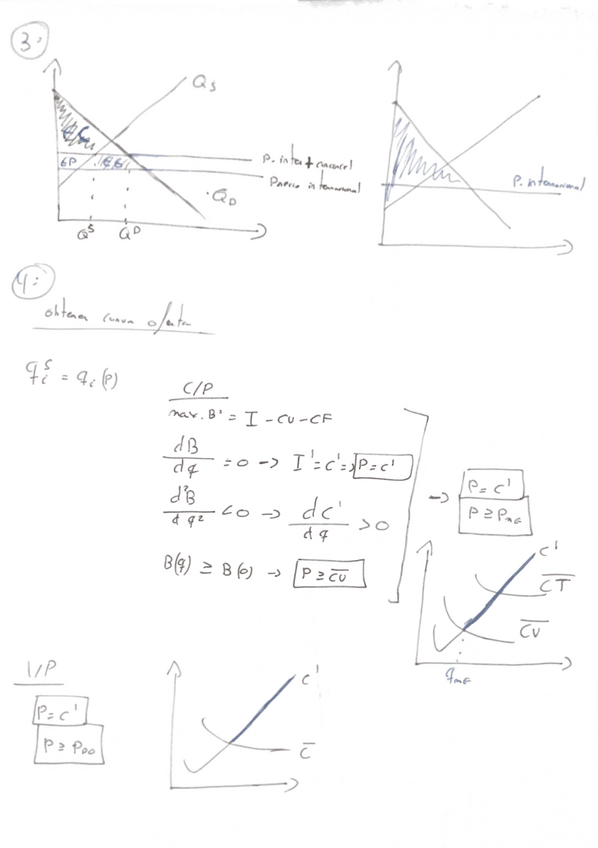 3:
Qs
EC
P. inter + arancel
EP
EG
Precio internacional
QD
Q^S
Q^D
P. internacional
4:
obtener curva oferta
q_i^s = q_i(p)
C/P
max. B' = I - CV - CF
dB/dq = 0 → I' = c' ⇒ P = c'
d²B/dq² < 0 → dc'/dq > 0
B(q) ≥ B(0) → P ≥ \overline{CV}
→ P = c'
P ≥ PmE
c'
\overline{CT}
\overline{CV}
qmE
l/P
P = c'
P ≥ PDO
c'
\overline{C}